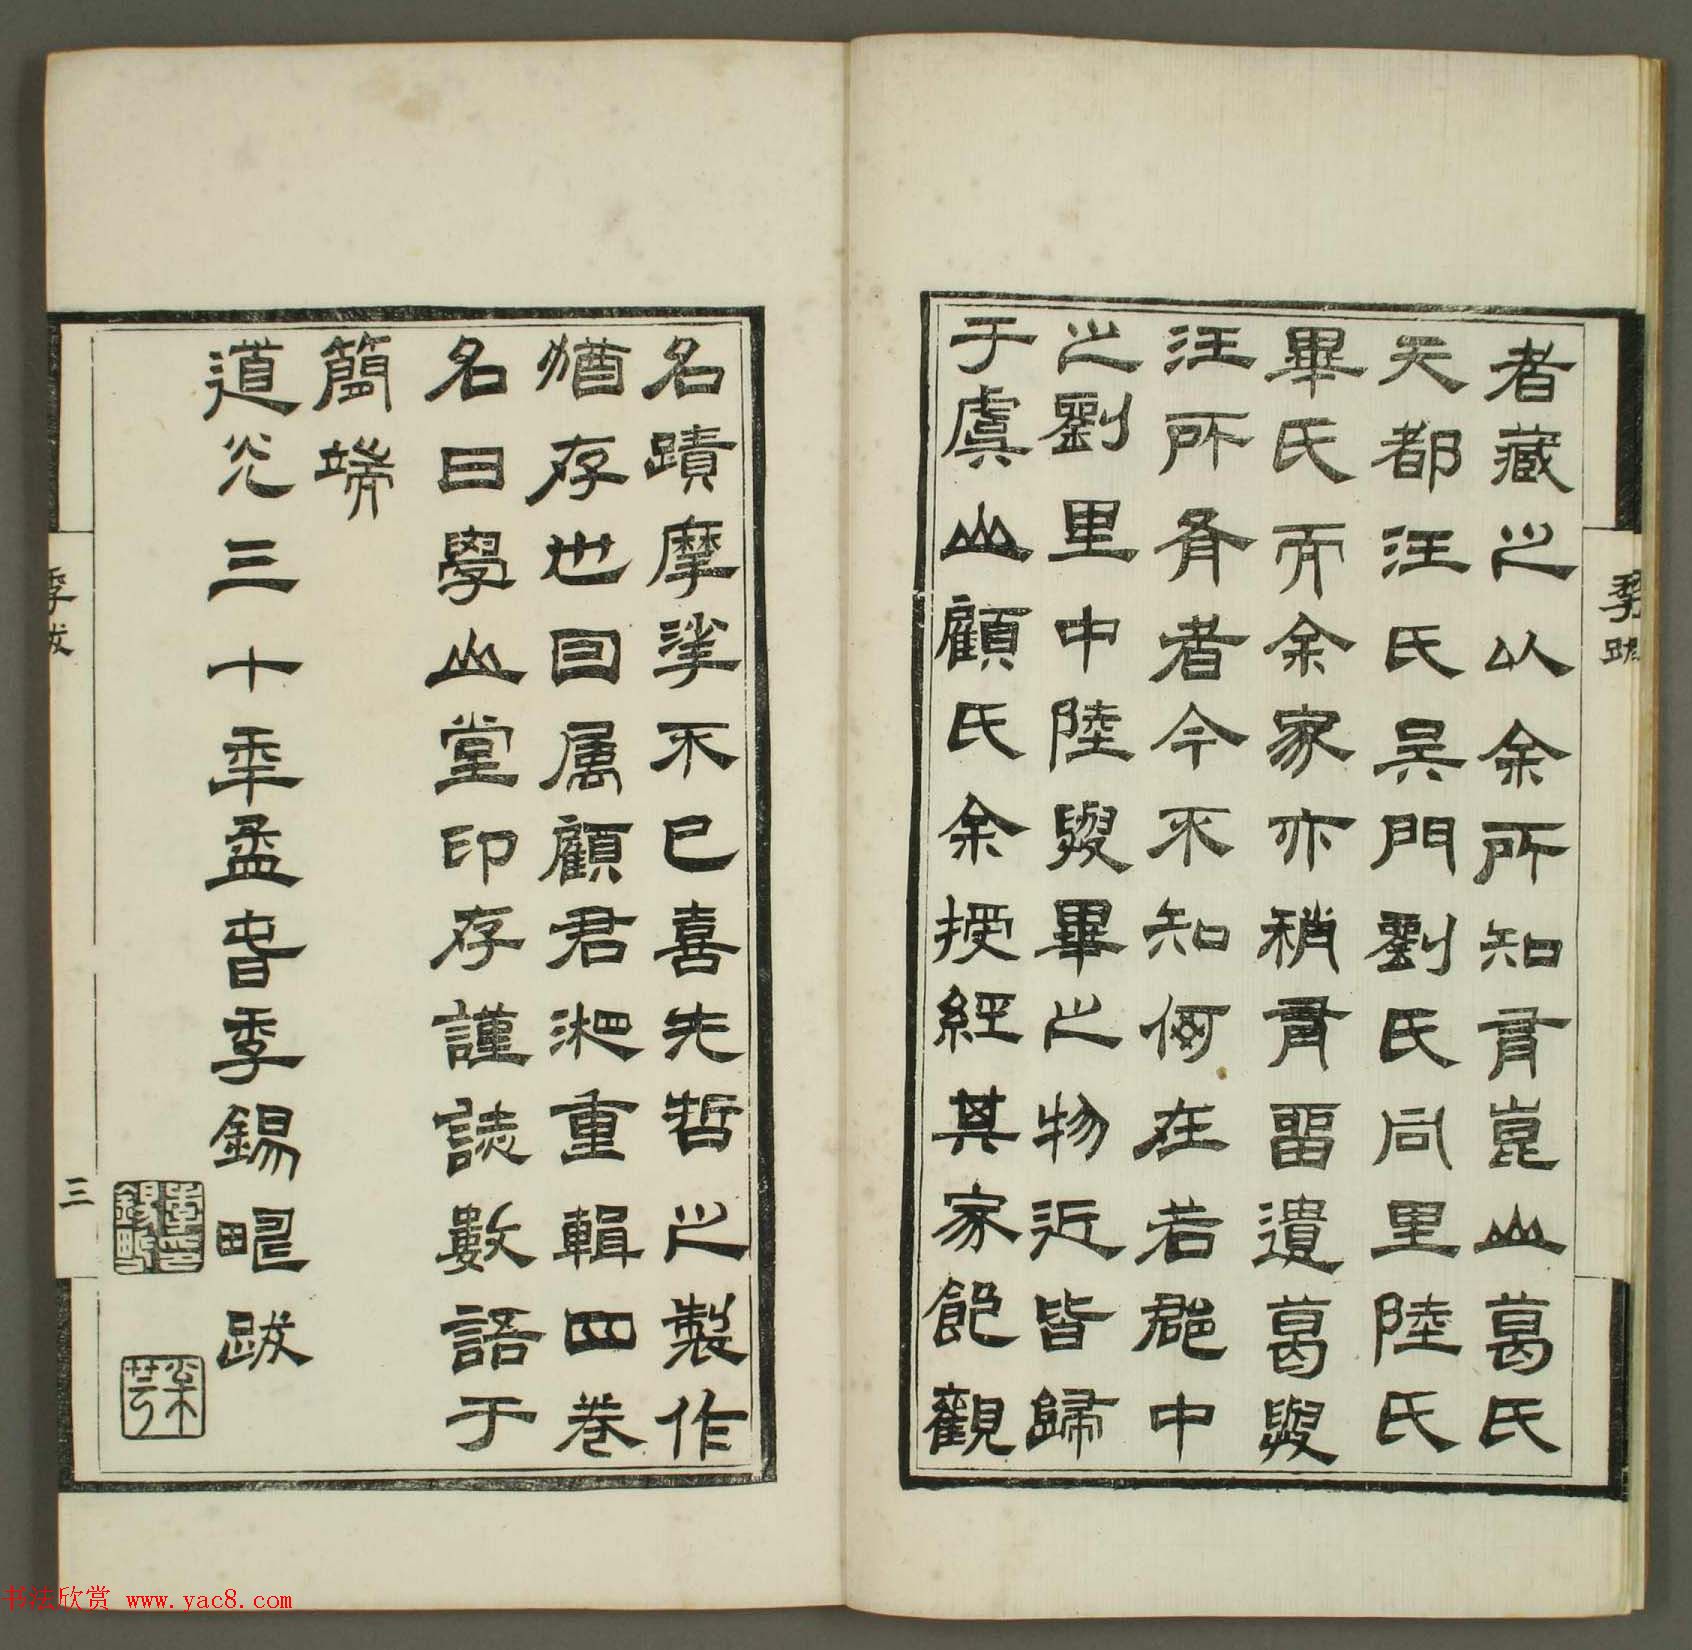 者藏之以余所知有崑山葛氏
天都汪氏吴門劉氏同里陸氏
畢氏而余家亦稍有留遺葛與
汪所有者今不知何在若郡中
之劉里中陸與畢之物近皆歸
于虞山顧氏余授經其家飽觀
季跋
名蹟摩挲不已喜先哲之製作
猶存世回属顧君湘重輯四卷
名曰學山堂印存謹誌數語于
簡端
道光三十年孟春季錫疇跋
季跋
三
书法欣赏 www.yac8.com